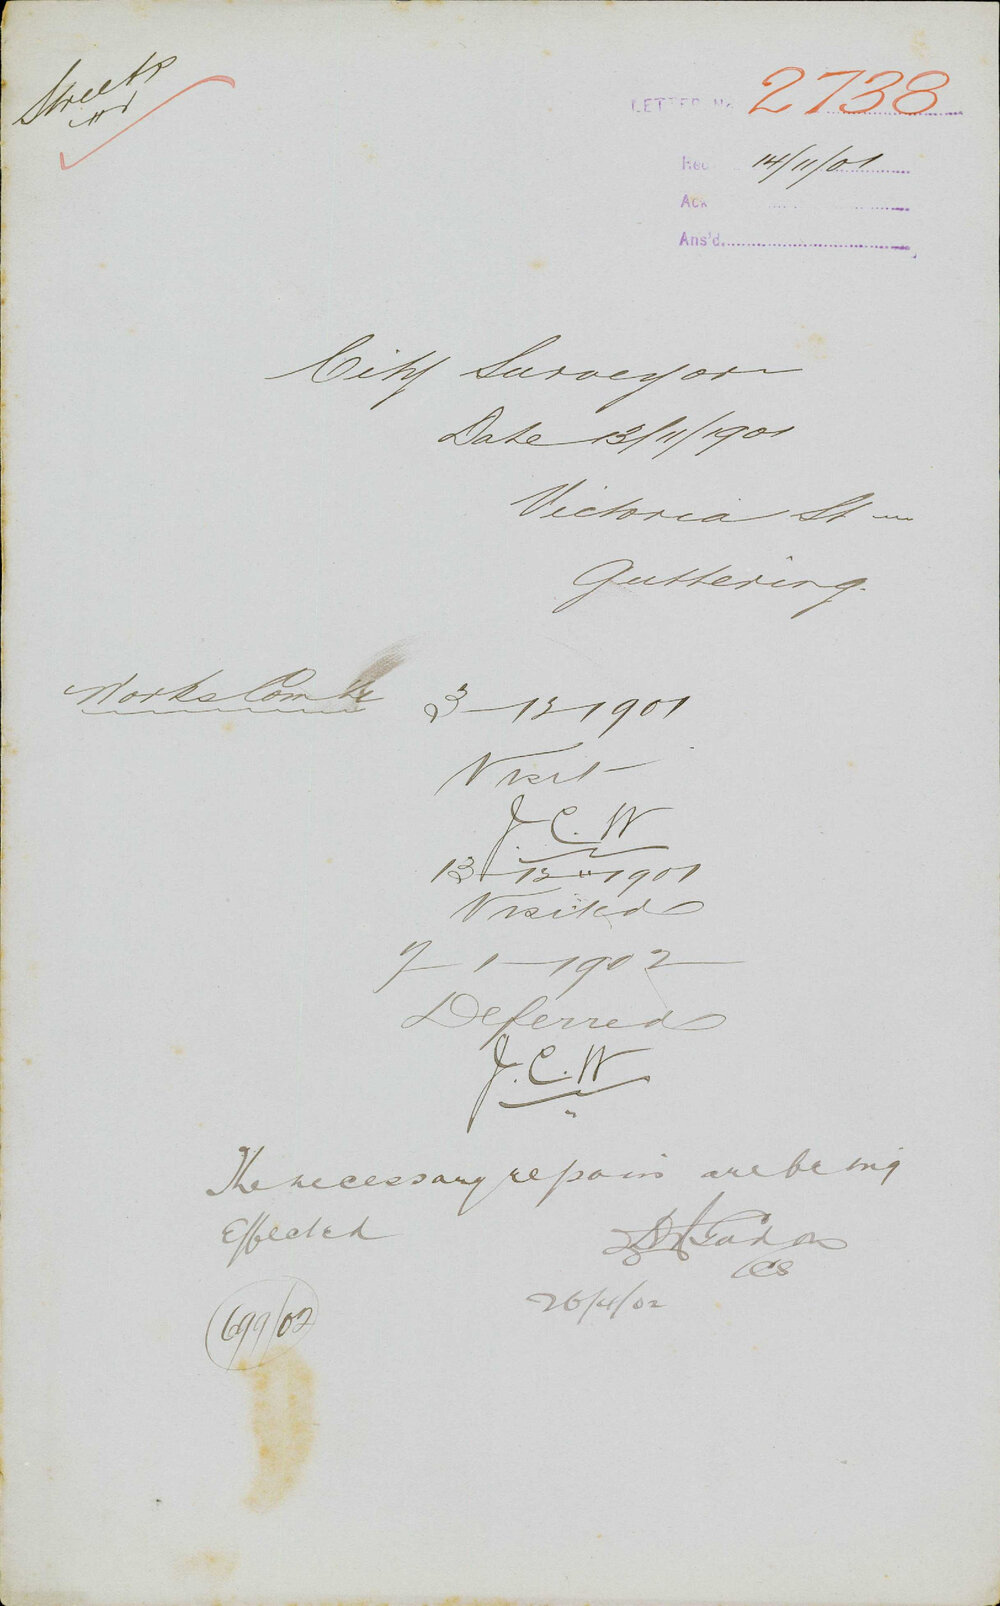 Streets
LETTER No 2738
Rec 14/11/01
Ack
Ans'd
City Surveyor
Date 13/11/1901
Victoria St
Guttering.
Works Comtte 3-12-1901
Visit
J.C.W
13-12-1901
Visited
7-1-1902
Deferred
J.C.W
The necessary repairs are being
Effected
CS
699/02
26/4/02